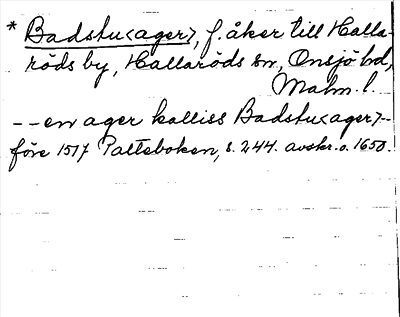 * Badstu<ager>, f. åker till Halla-
röds by, Hallaröds sn, Onsjö hd,
Malm. l.
-- en ager kalliss Badstu<ager>--
före 1517 Palteboken, s. 244. avskr. o. 1650.